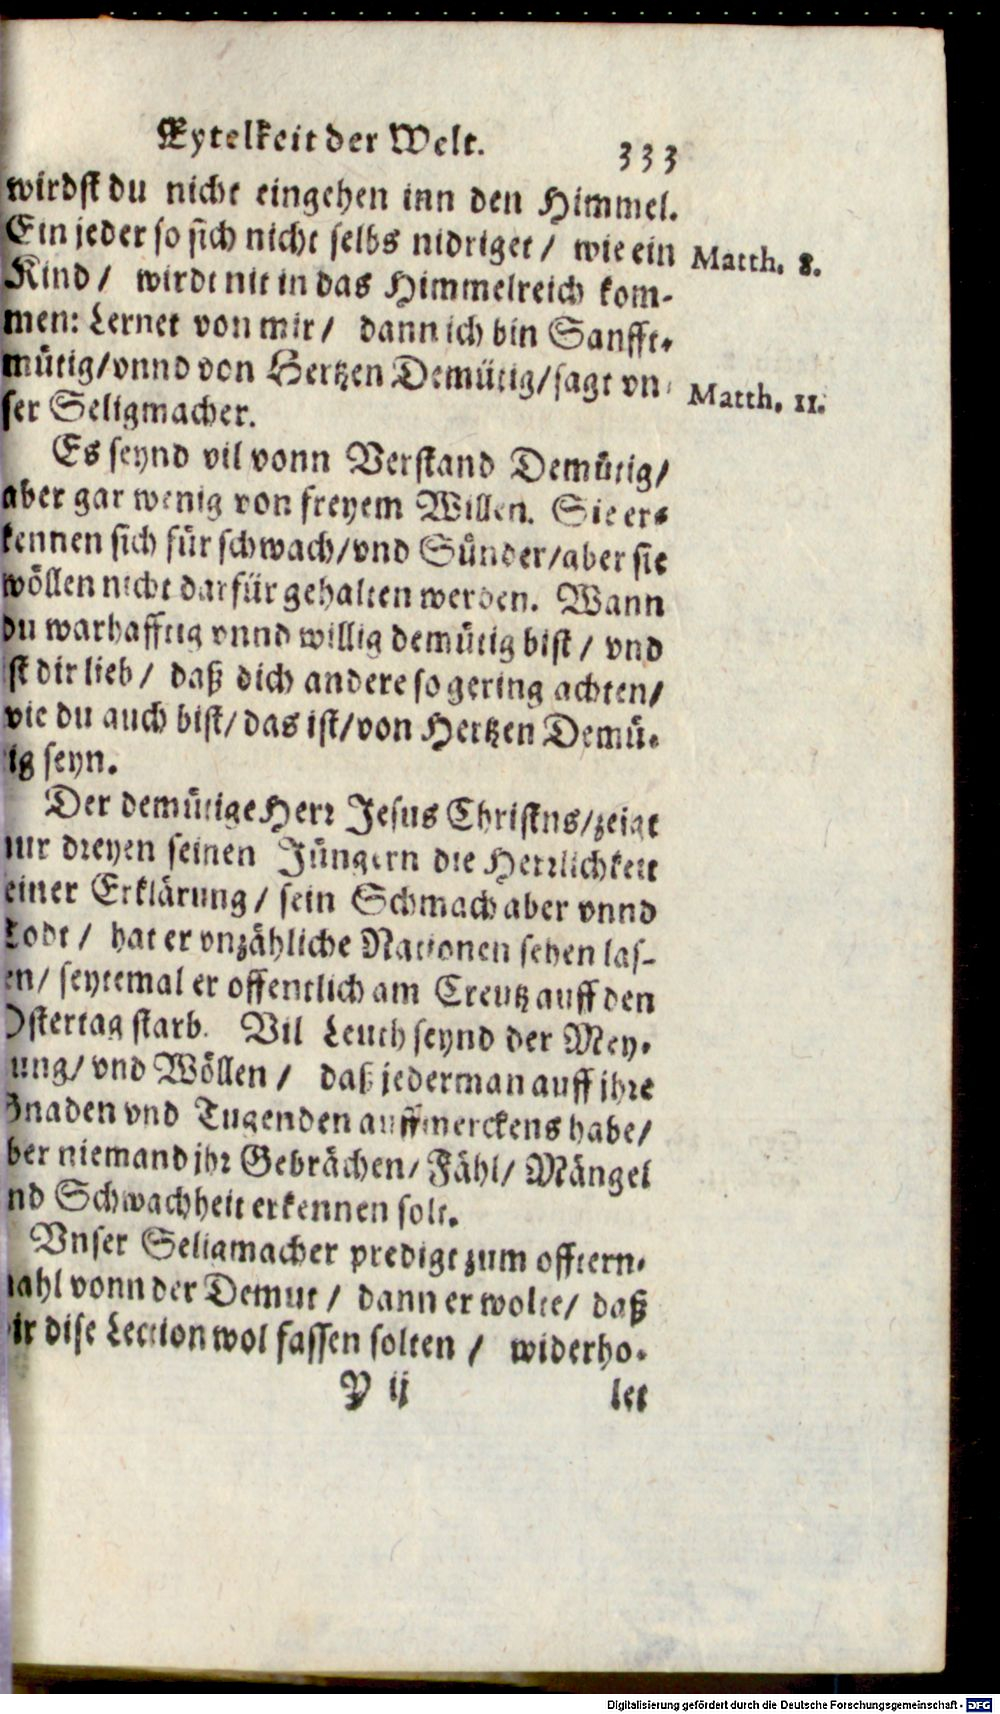 Eytelkeit der Welt. 333
wirdst du nicht eingehen inn den Himmel.
Ein jeder so sich nicht selbs nidriget / wie ein
Matth. 8.
Kind / wirdt nit in das Himmelreich kom-
men: Lernet von mir / dann ich bin Sanfft-
mütig/vnnd von Hertzen Demütig/sagt vn-
Matth. 11.
ser Seligmacher.
Es seynd vil vonn Verstand Demütig/
aber gar wenig von freyem Willen. Sie er-
kennen sich für schwach/vnd Sünder/aber sie
wöllen nicht darfür gehalten werden. Wann
du warhafftig vnnd willig demütig bist / vnd
ist dir lieb / daß dich andere so gering achten/
wie du auch bist/das ist/von Hertzen Demü-
tig seyn.
Der demütige Herr Jesus Christns/zeigt
nur dreyen seinen Jüngern die Herrlichkeit
seiner Erklärung / sein Schmach aber vnnd
Todt / hat er vnzähliche Nationen sehen las-
en/ seytemal er offentlich am Creutz auff den
Ostertag starb. Vil Leuth seynd der Mey-
ung/ vnd Wöllen / daß jederman auff ihre
Gnaden vnd Tugenden auffmerckens habe/
ber niemand jhr Gebrächen/ Fähl/ Mängel
nd Schwachheit erkennen solt.
Vnser Seligmacher predigt zum offtern-
mahl vonn der Demut / dann er wolte/ daß
wir dise Lection wol fassen solten / widerho-
Y ij let
Digitalisierung gefördert durch die Deutsche Forschungsgemeinschaft - DFG